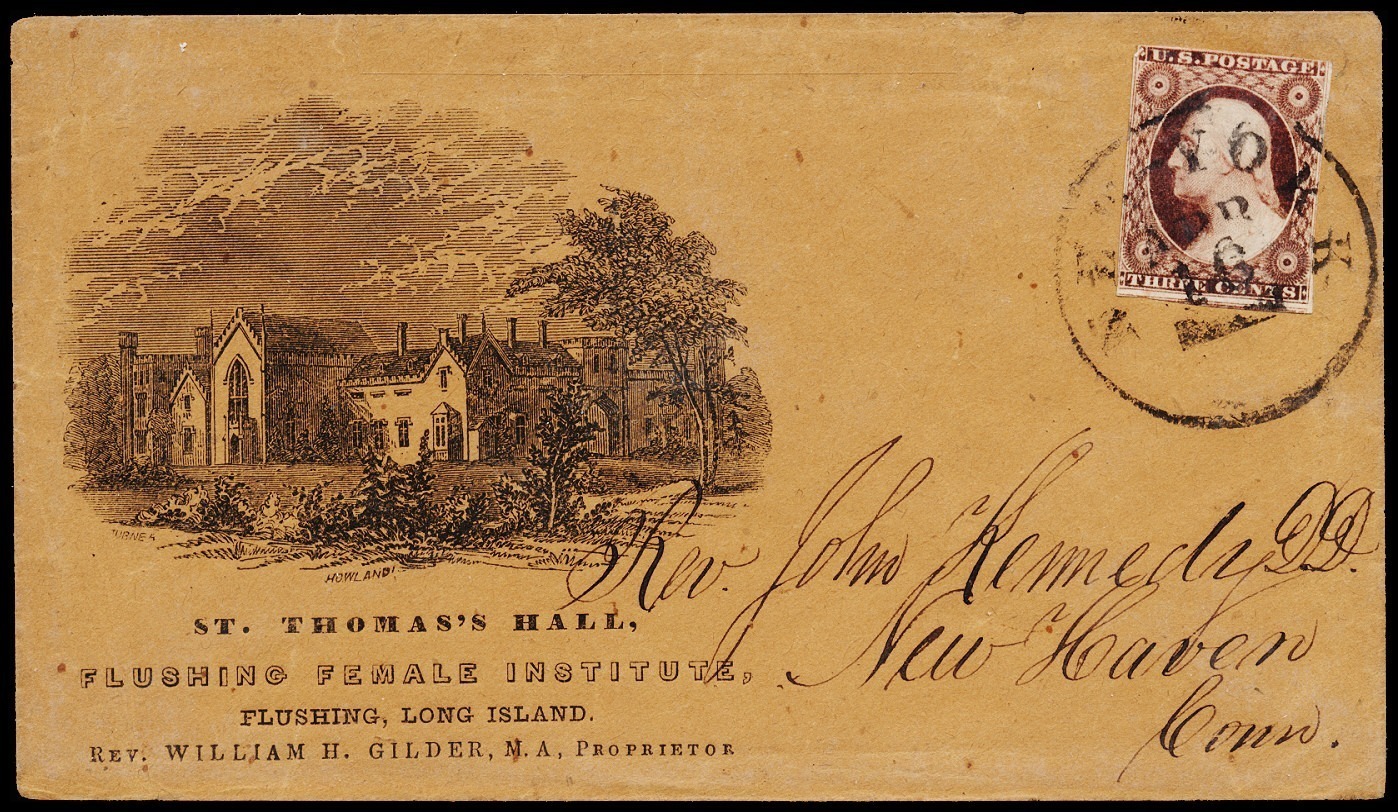 U.S. POSTAGE
THREE CENTS
NEW YORK
APR
16
HOWLAND
ST. THOMAS'S HALL,
FLUSHING FEMALE INSTITUTE,
FLUSHING, LONG ISLAND.
REV. WILLIAM H. GILDER, M.A, PROPRIETOR
Rev. John Kennedy D.D.
New Haven
Conn.